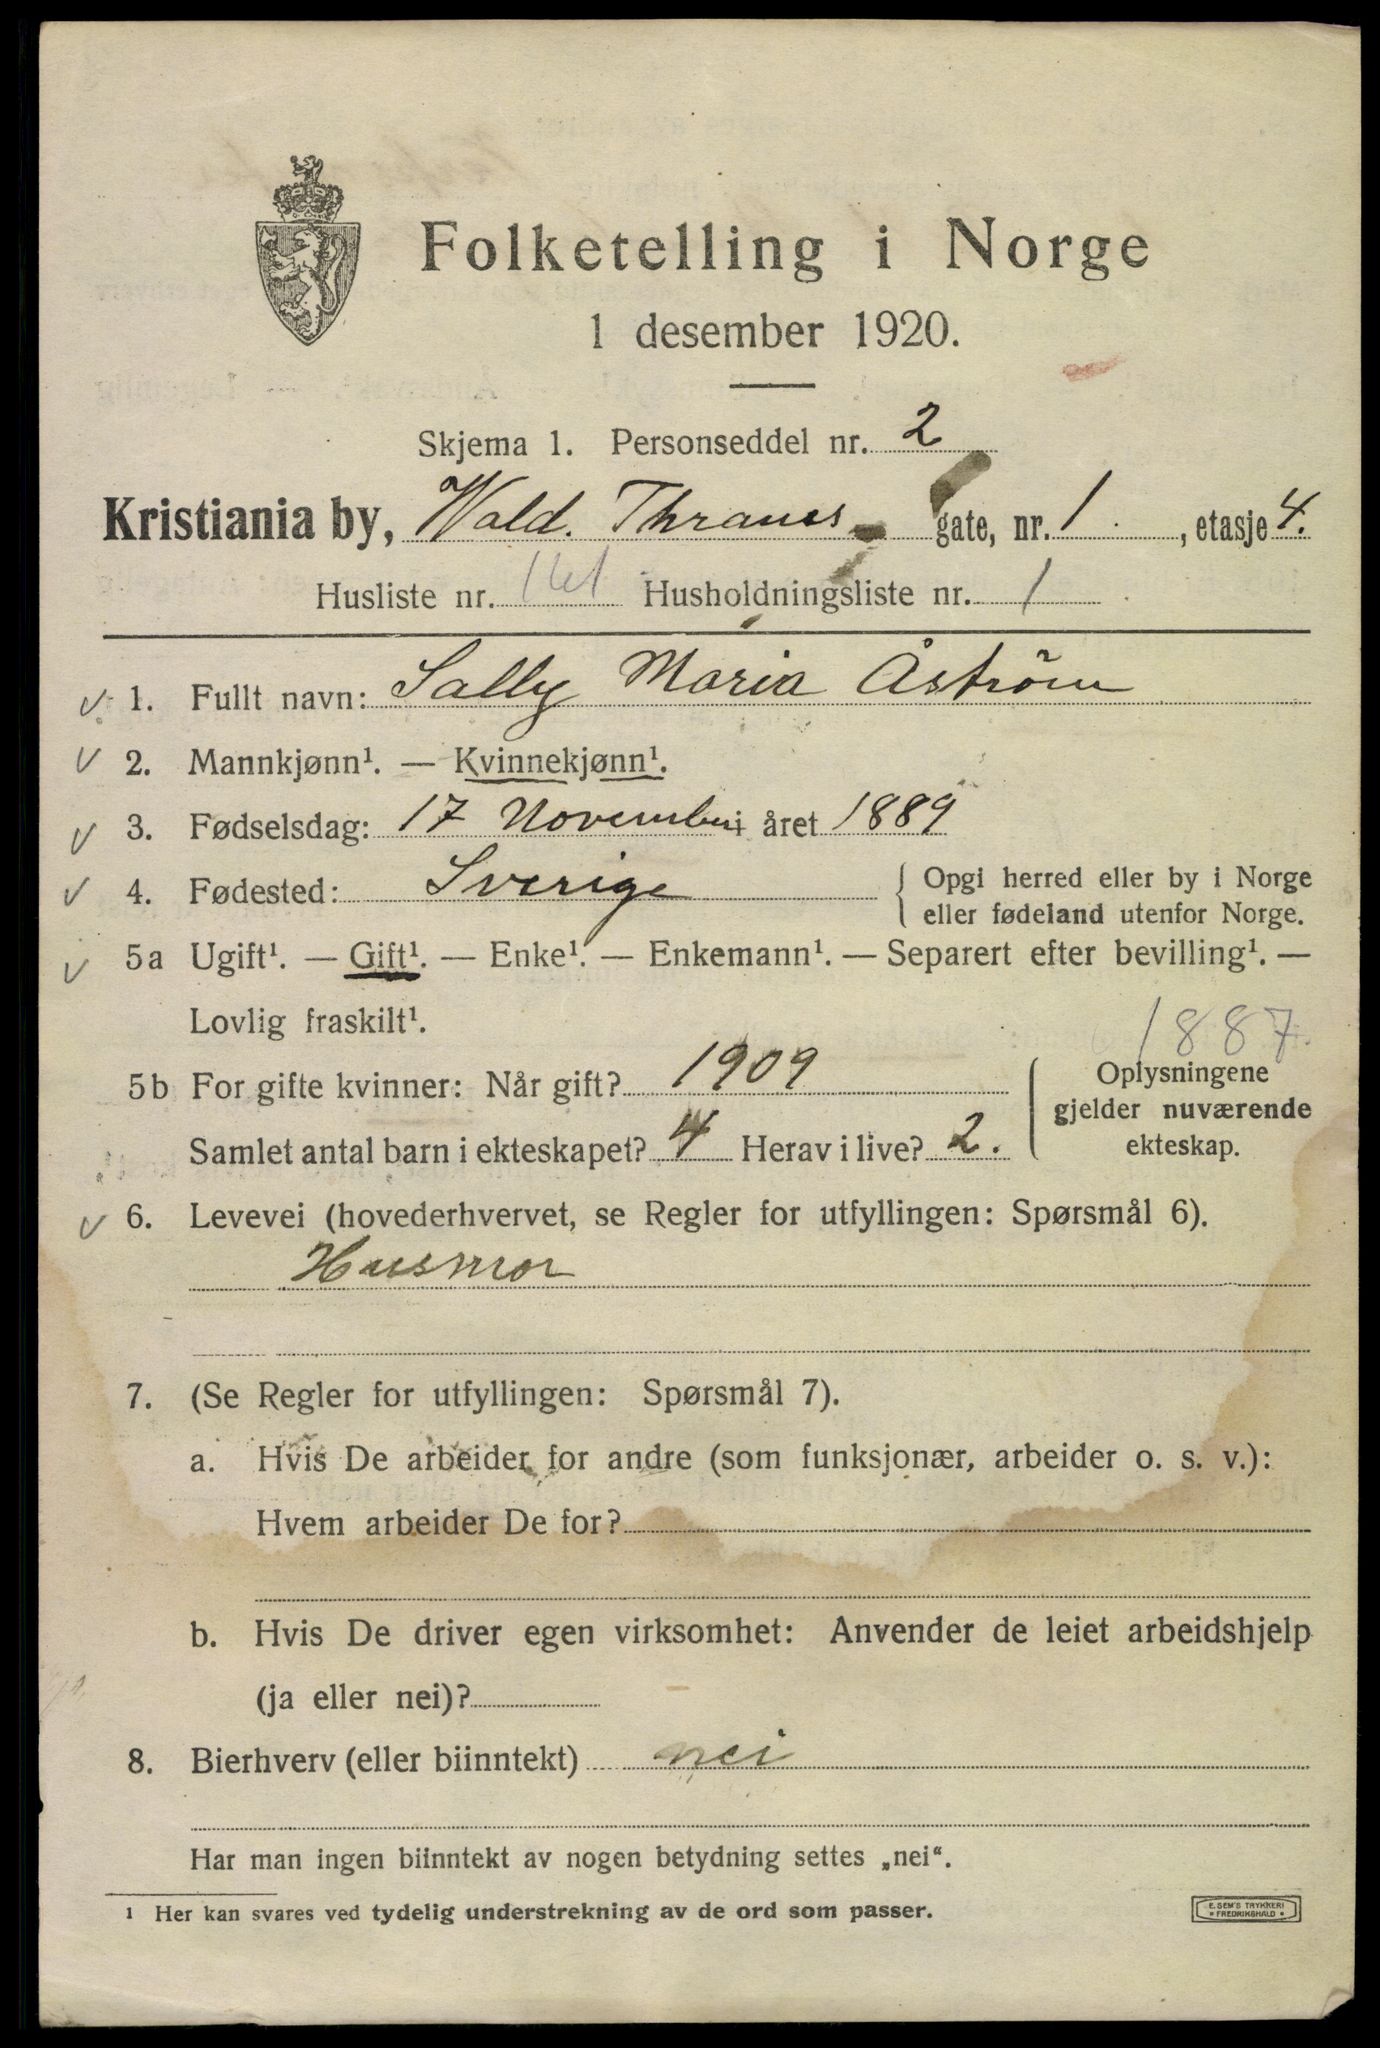 Folketelling i Norge
1 desember 1920.
Skjema 1. Personseddel nr. 2
Kristiania by, Wald. Thranes gate, nr. 1 , etasje 4.
Husliste nr. 161 Husholdningsliste nr. 1
1. Fullt navn: Sally Maria Åström
2. Mannkjønn¹. — Kvinnekjønn¹.
3. Fødselsdag: 17 November i året 1889
4. Fødested: Sverige { Opgi herred eller by i Norge
eller fødeland utenfor Norge.
5a Ugift¹. — Gift¹. — Enke¹. — Enkemann¹. — Separert efter bevilling¹. —
Lovlig fraskilt¹.
1887.
5b For gifte kvinner: Når gift? 1909
Samlet antal barn i ekteskapet? 4 Herav i live? 2.
Oplysningene
gjelder nuværende
ekteskap.
6. Levevei (hovederhvervet, se Regler for utfyllingen: Spørsmål 6).
Husmor
7. (Se Regler for utfyllingen: Spørsmål 7).
a. Hvis De arbeider for andre (som funksjonær, arbeider o. s. v.):
Hvem arbeider De for?
b. Hvis De driver egen virksomhet: Anvender de leiet arbeidshjelp
(ja eller nei)?
8. Bierhverv (eller biinntekt) nei
Har man ingen biinntekt av nogen betydning settes „nei“.
1 Her kan svares ved tydelig understrekning av de ord som passer.
E. SEM'S TRYKKERI
* FREDRIKSHALD *